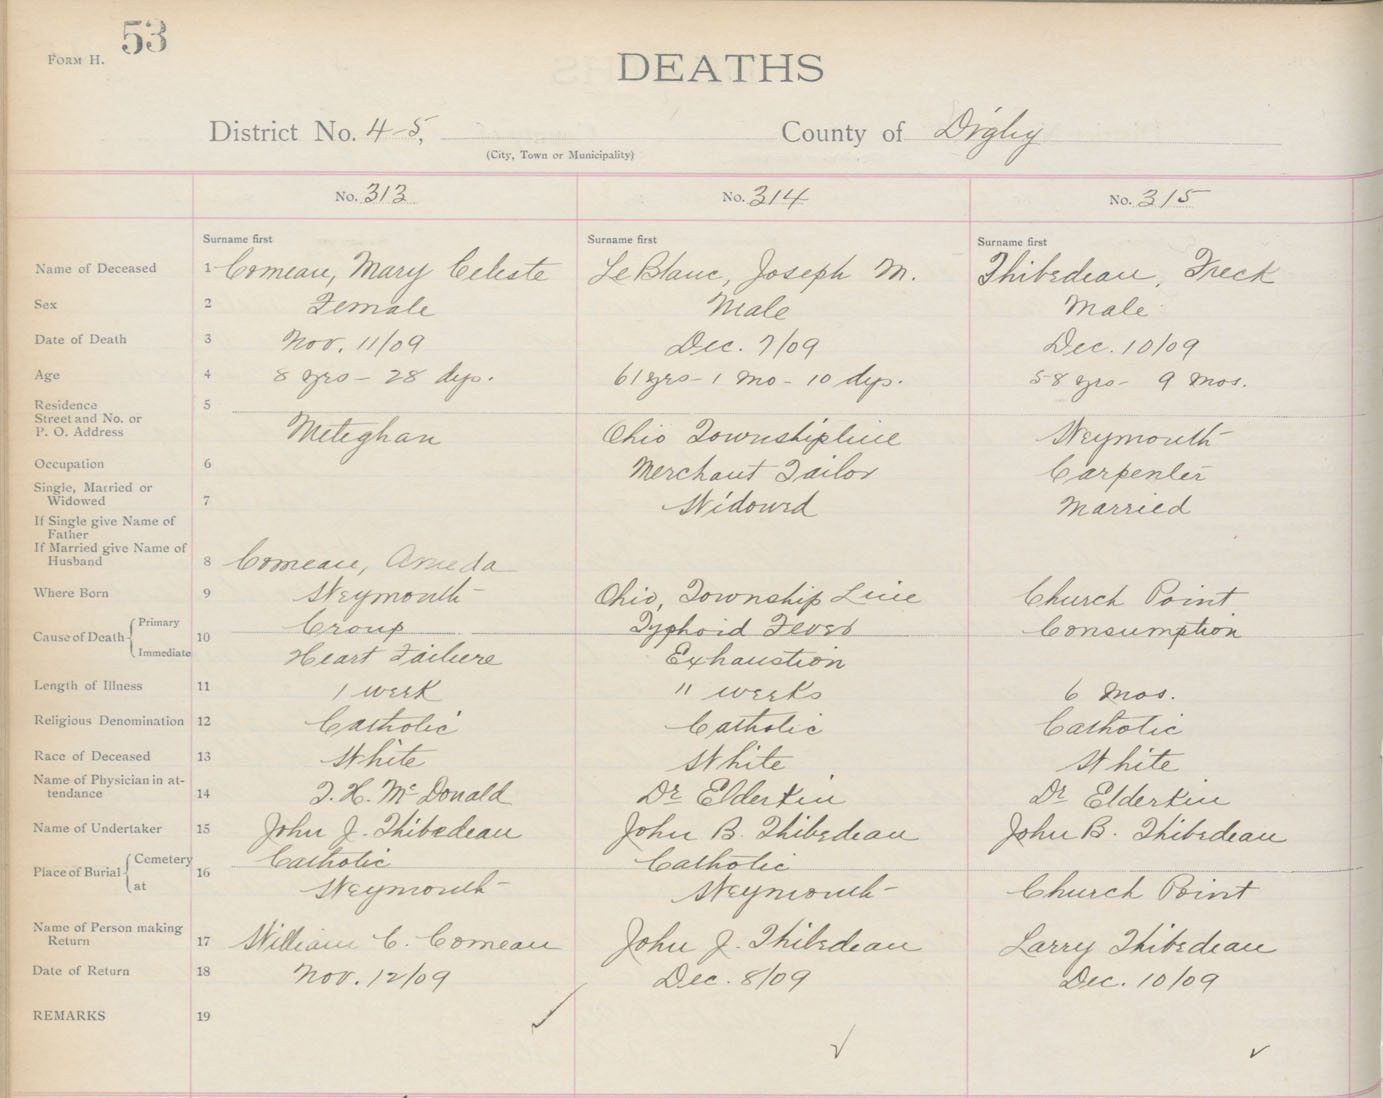 53
FORM H.
DEATHS
District No. 4-5, County of Digby
(City, Town or Municipality)
No. 313 No. 314 No. 315
Surname first Surname first Surname first
Name of Deceased 1 Comeau, Mary Celeste LeBlanc, Joseph M. Thibedeau, Freck
Sex 2 Female Male Male
Date of Death 3 Nov. 11/09 Dec. 7/09 Dec. 10/09
Age 4 8 yrs - 28 dys. 61 yrs - 1 mo - 10 dys. 58 yrs - 9 mos.
Residence 5
Street and No. or
P. O. Address Meteghan Ohio Townshipline Weymouth
Occupation 6 Merchant Tailor Carpenter
Single, Married or
Widowed 7 Widowd Married
If Single give Name of
Father
If Married give Name of
Husband 8 Comeau, Ameda
Where Born 9 Weymouth Ohio, Township Line Church Point
Cause of Death Primary 10 Croup Typhoid Fever Consumption
Immediate Heart Failure Exhaustion
Length of Illness 11 1 week 11 weeks 6 mos.
Religious Denomination 12 Catholic Catholic Catholic
Race of Deceased 13 White White White
Name of Physician in at-
tendance 14 J. H. McDonald Dr Elderkin Dr Elderkin
Name of Undertaker 15 John J. Thibedeau John B. Thibedeau John B. Thibedeau
Place of Burial Cemetery 16 Catholic Catholic
at Weymouth Weymouth Church Point
Name of Person making
Return 17 William C. Comeau John J. Thibedeau Larry Thibedeau
Date of Return 18 Nov. 12/09 Dec. 8/09 Dec. 10/09
REMARKS 19